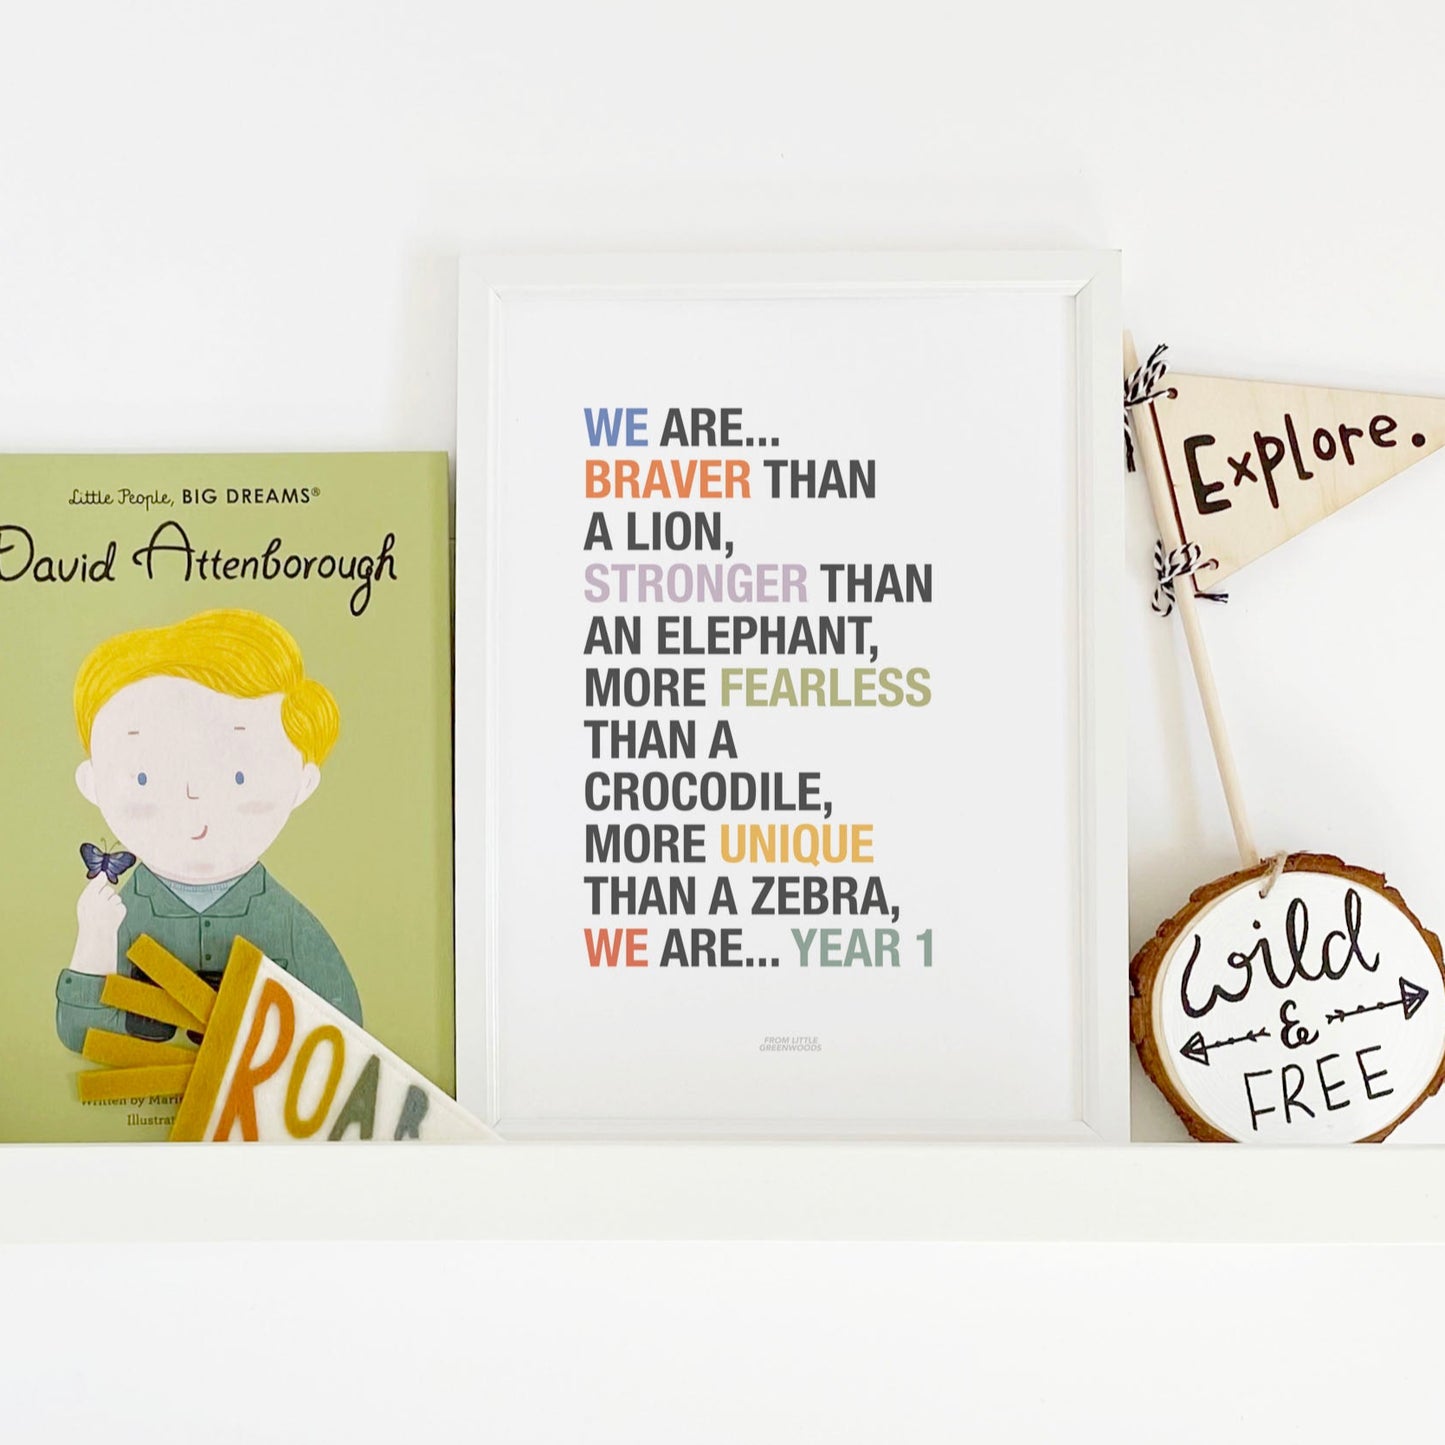 Little People, BIG DREAMS®
David Attenborough
Written by
ROAR
WE ARE...
BRAVER THAN
A LION,
STRONGER THAN
AN ELEPHANT,
MORE FEARLESS
THAN A
CROCODILE,
MORE UNIQUE
THAN A ZEBRA,
WE ARE... YEAR 1
FROM LITTLE
GREENWOODS
Explore.
Wild
&
FREE